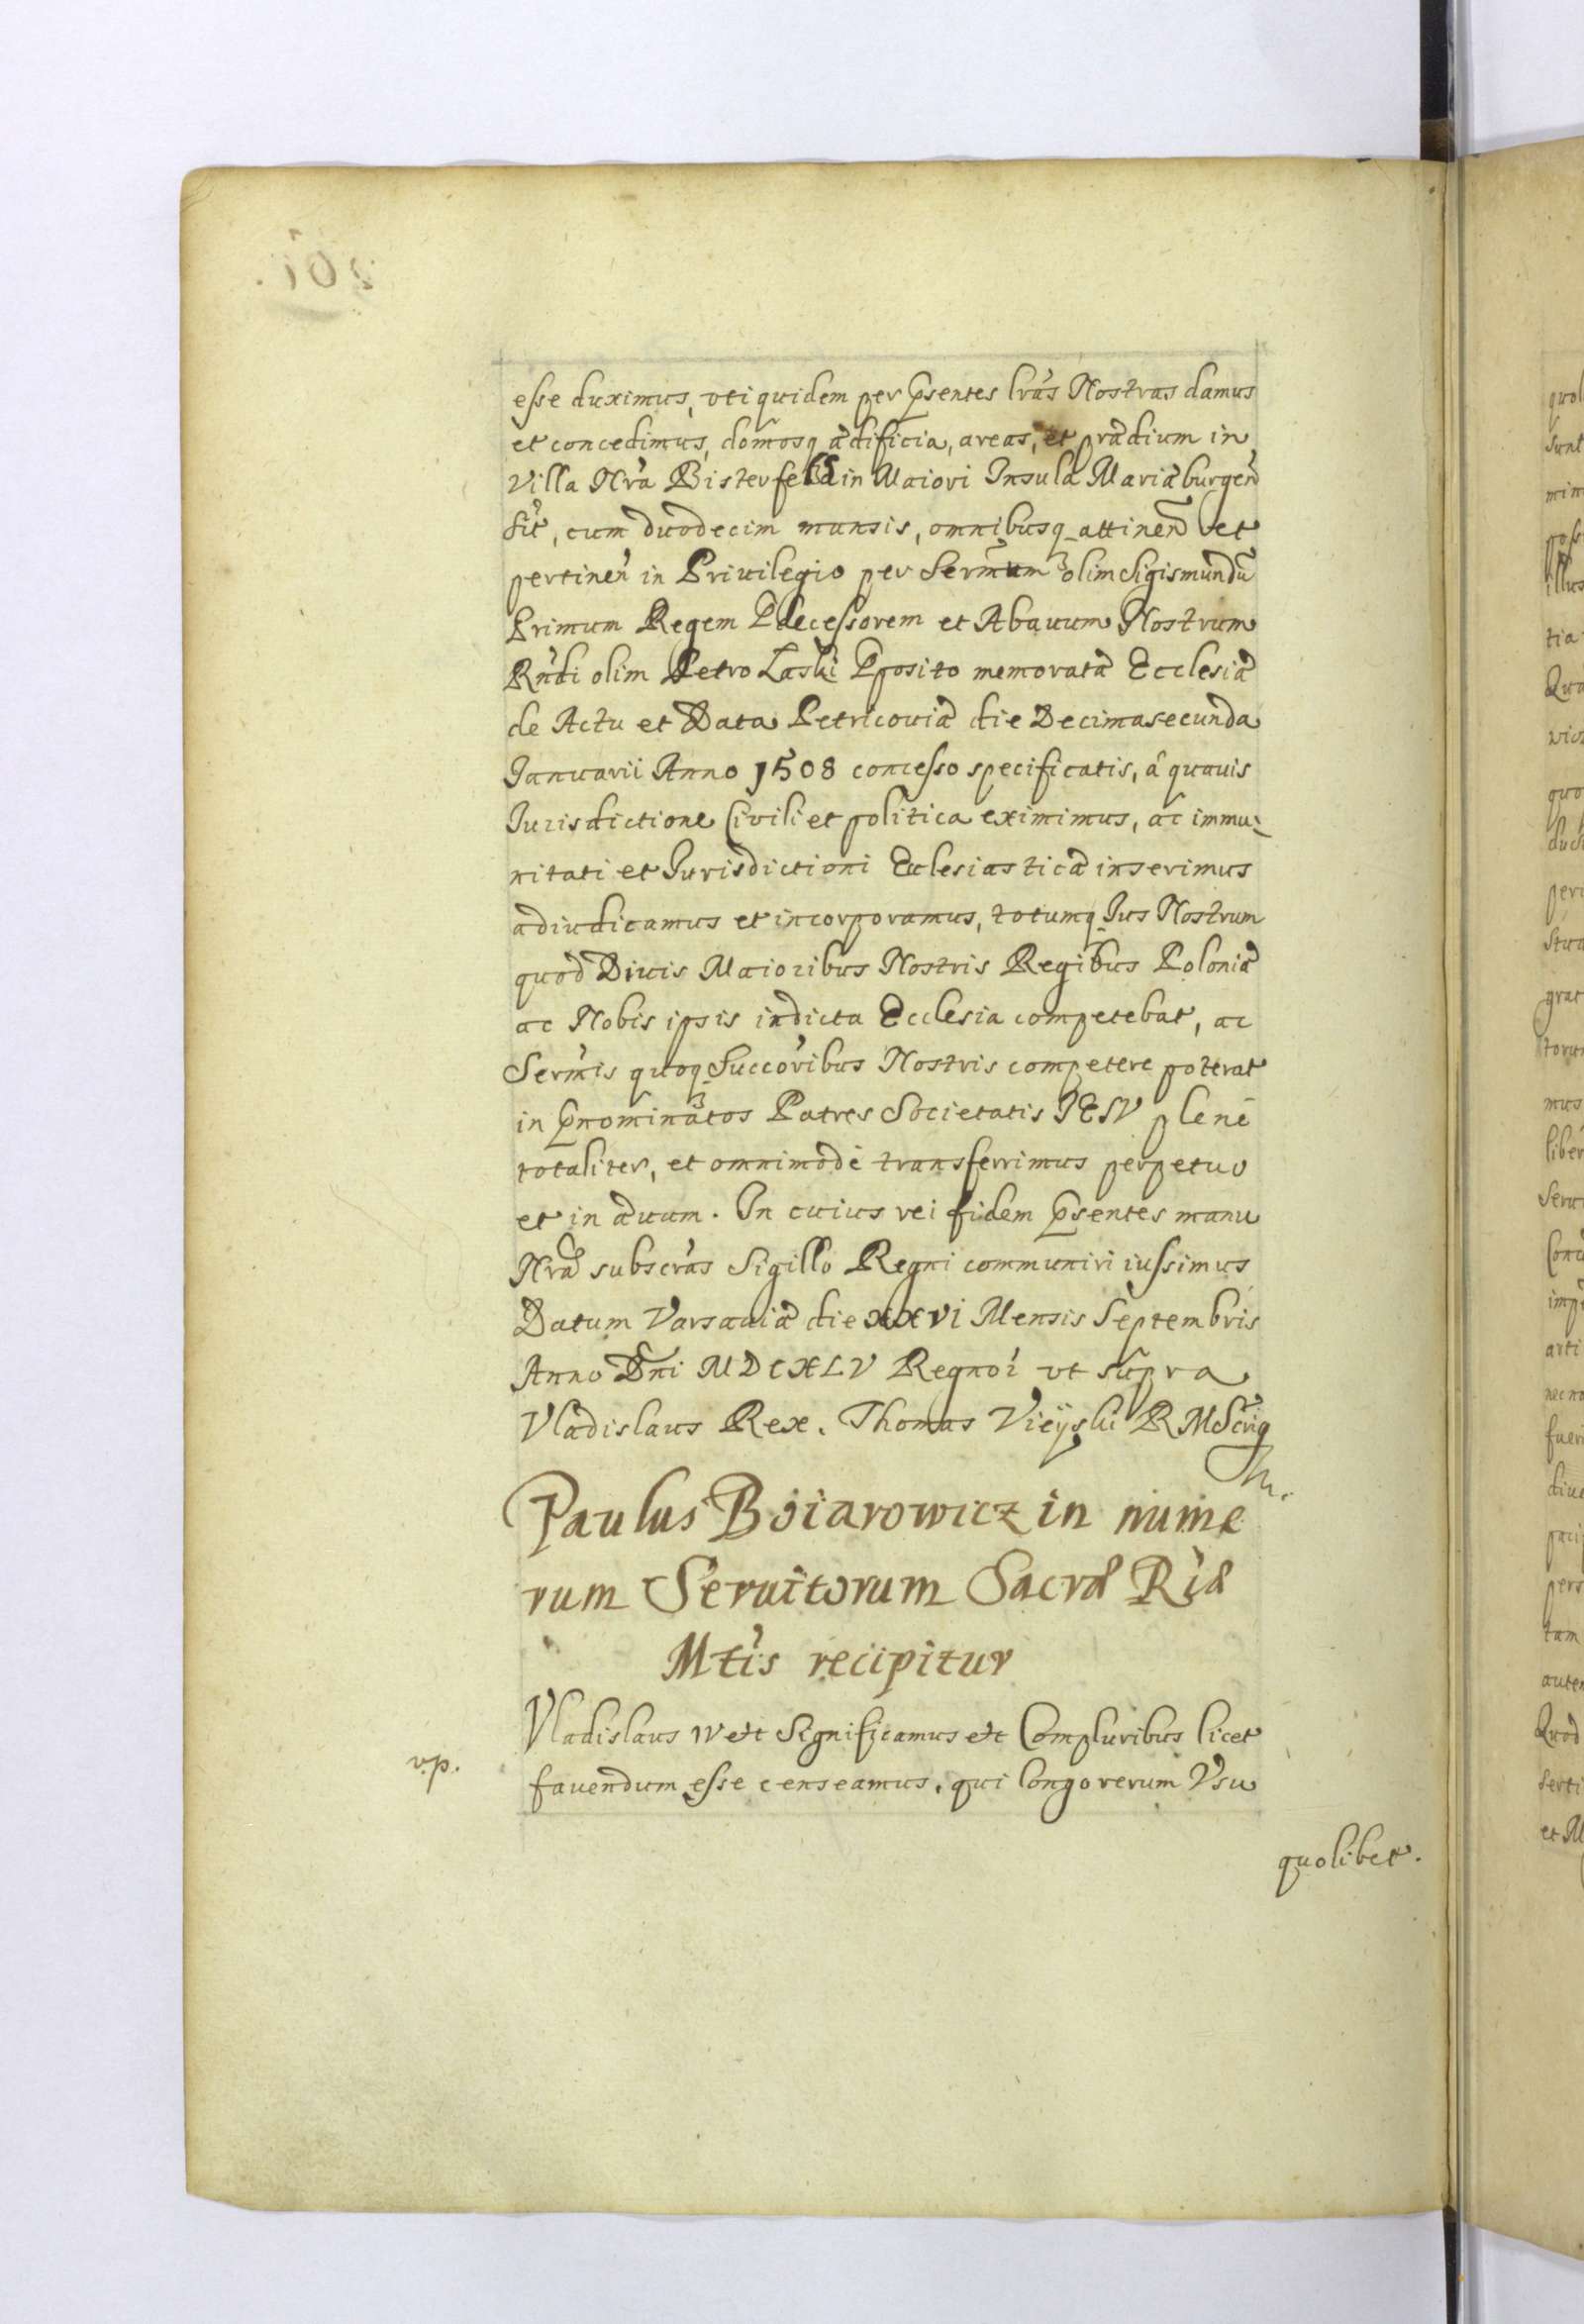 esse duximus, uti quidem per psentes lrãs Nostras damus
et concedimus, domosq ædificia, areas, et prædium in
Villa Nrã Bisterfeld in Maiori Insula Mariæburgen
Sit, cum duodecim mansis, omnibusq attinen et
pertinen in Privilegio per Sermum olim Sigismundũ
Primum Regem Pdecessorem et Abavum Nostrum
Rndi olim Petro Laski Pposito memoratæ Ecclesiæ
de Actu et Data Petricoviæ die Decimasecunda
Januarii Anno 1508 concesso specificatis, â quavis
Jurisdictione Civili et politica eximimus, ac immu-
nitati et Jurisdictioni Ecclesiasticæ inserimus
adiudicamus et incorporamus, totumq Jus Nostrum
quod Divis Maioribus Nostris Regibus Poloniæ
ac Nobis ipsis in dicta Ecclesia competebat, ac
Sermis quoq Succoribus Nostris competere poterat
in pnominatos Patres Societatis JESV plenè
totaliter, et omnimodè transferrimus perpetuo
et in ævum. In cuius rei fidem psentes manu
Nrã subscrãs Sigillo Regni communiri iussimus
Datum Varsaviæ die xxvi Mensis Septembris
Anno Dni MDCXLV Regnor ut supra
Vladislaus Rex. Thomas Vieyski R M
Paulus Boiarowicz in nume
rum Servitorum Sacræ Riæ
Mtis recipitur
Vladislaus IV etc Significamus etc Compluribus licet
v.p. favendum esse censeamus, qui longo rerum Usu
quolibet.